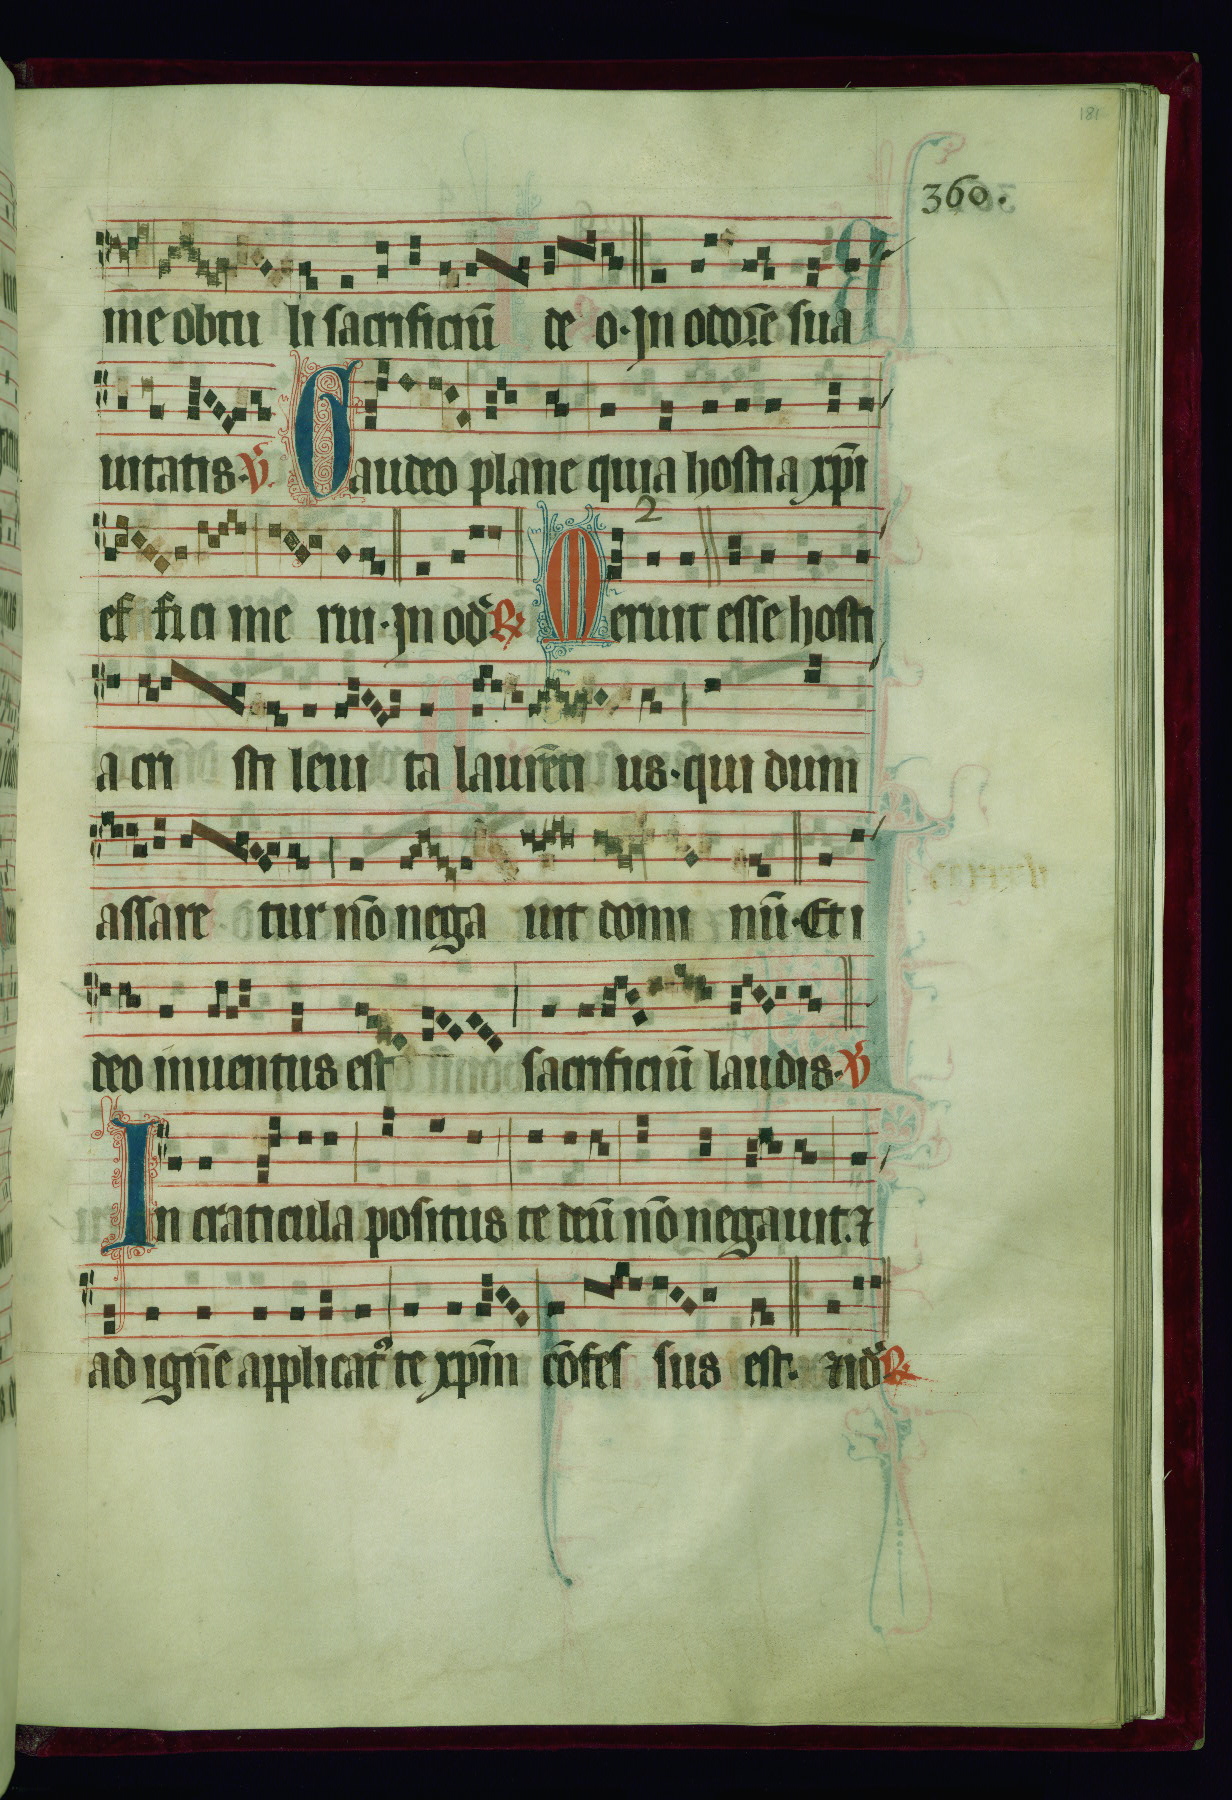 181
360.
me obtu li sacrificiū de o. Jn odorē sua
uitatis. ℣. Gaudeo plane quia hostia xp̄i
2
ef fici me rui. Jn od̓ ℟ Meruit esse hosti
a cri sti leui ta laurēti us. qui dum
assare tur nō nega uit domi nū. Et i
deo inuentus est sacrificiū laudis. ℣
In craticula positus te deū nō negauit. ⁊
ad ignē applicat᷒ te xp̄m cōfes sus est. ⁊ id̓ ℟